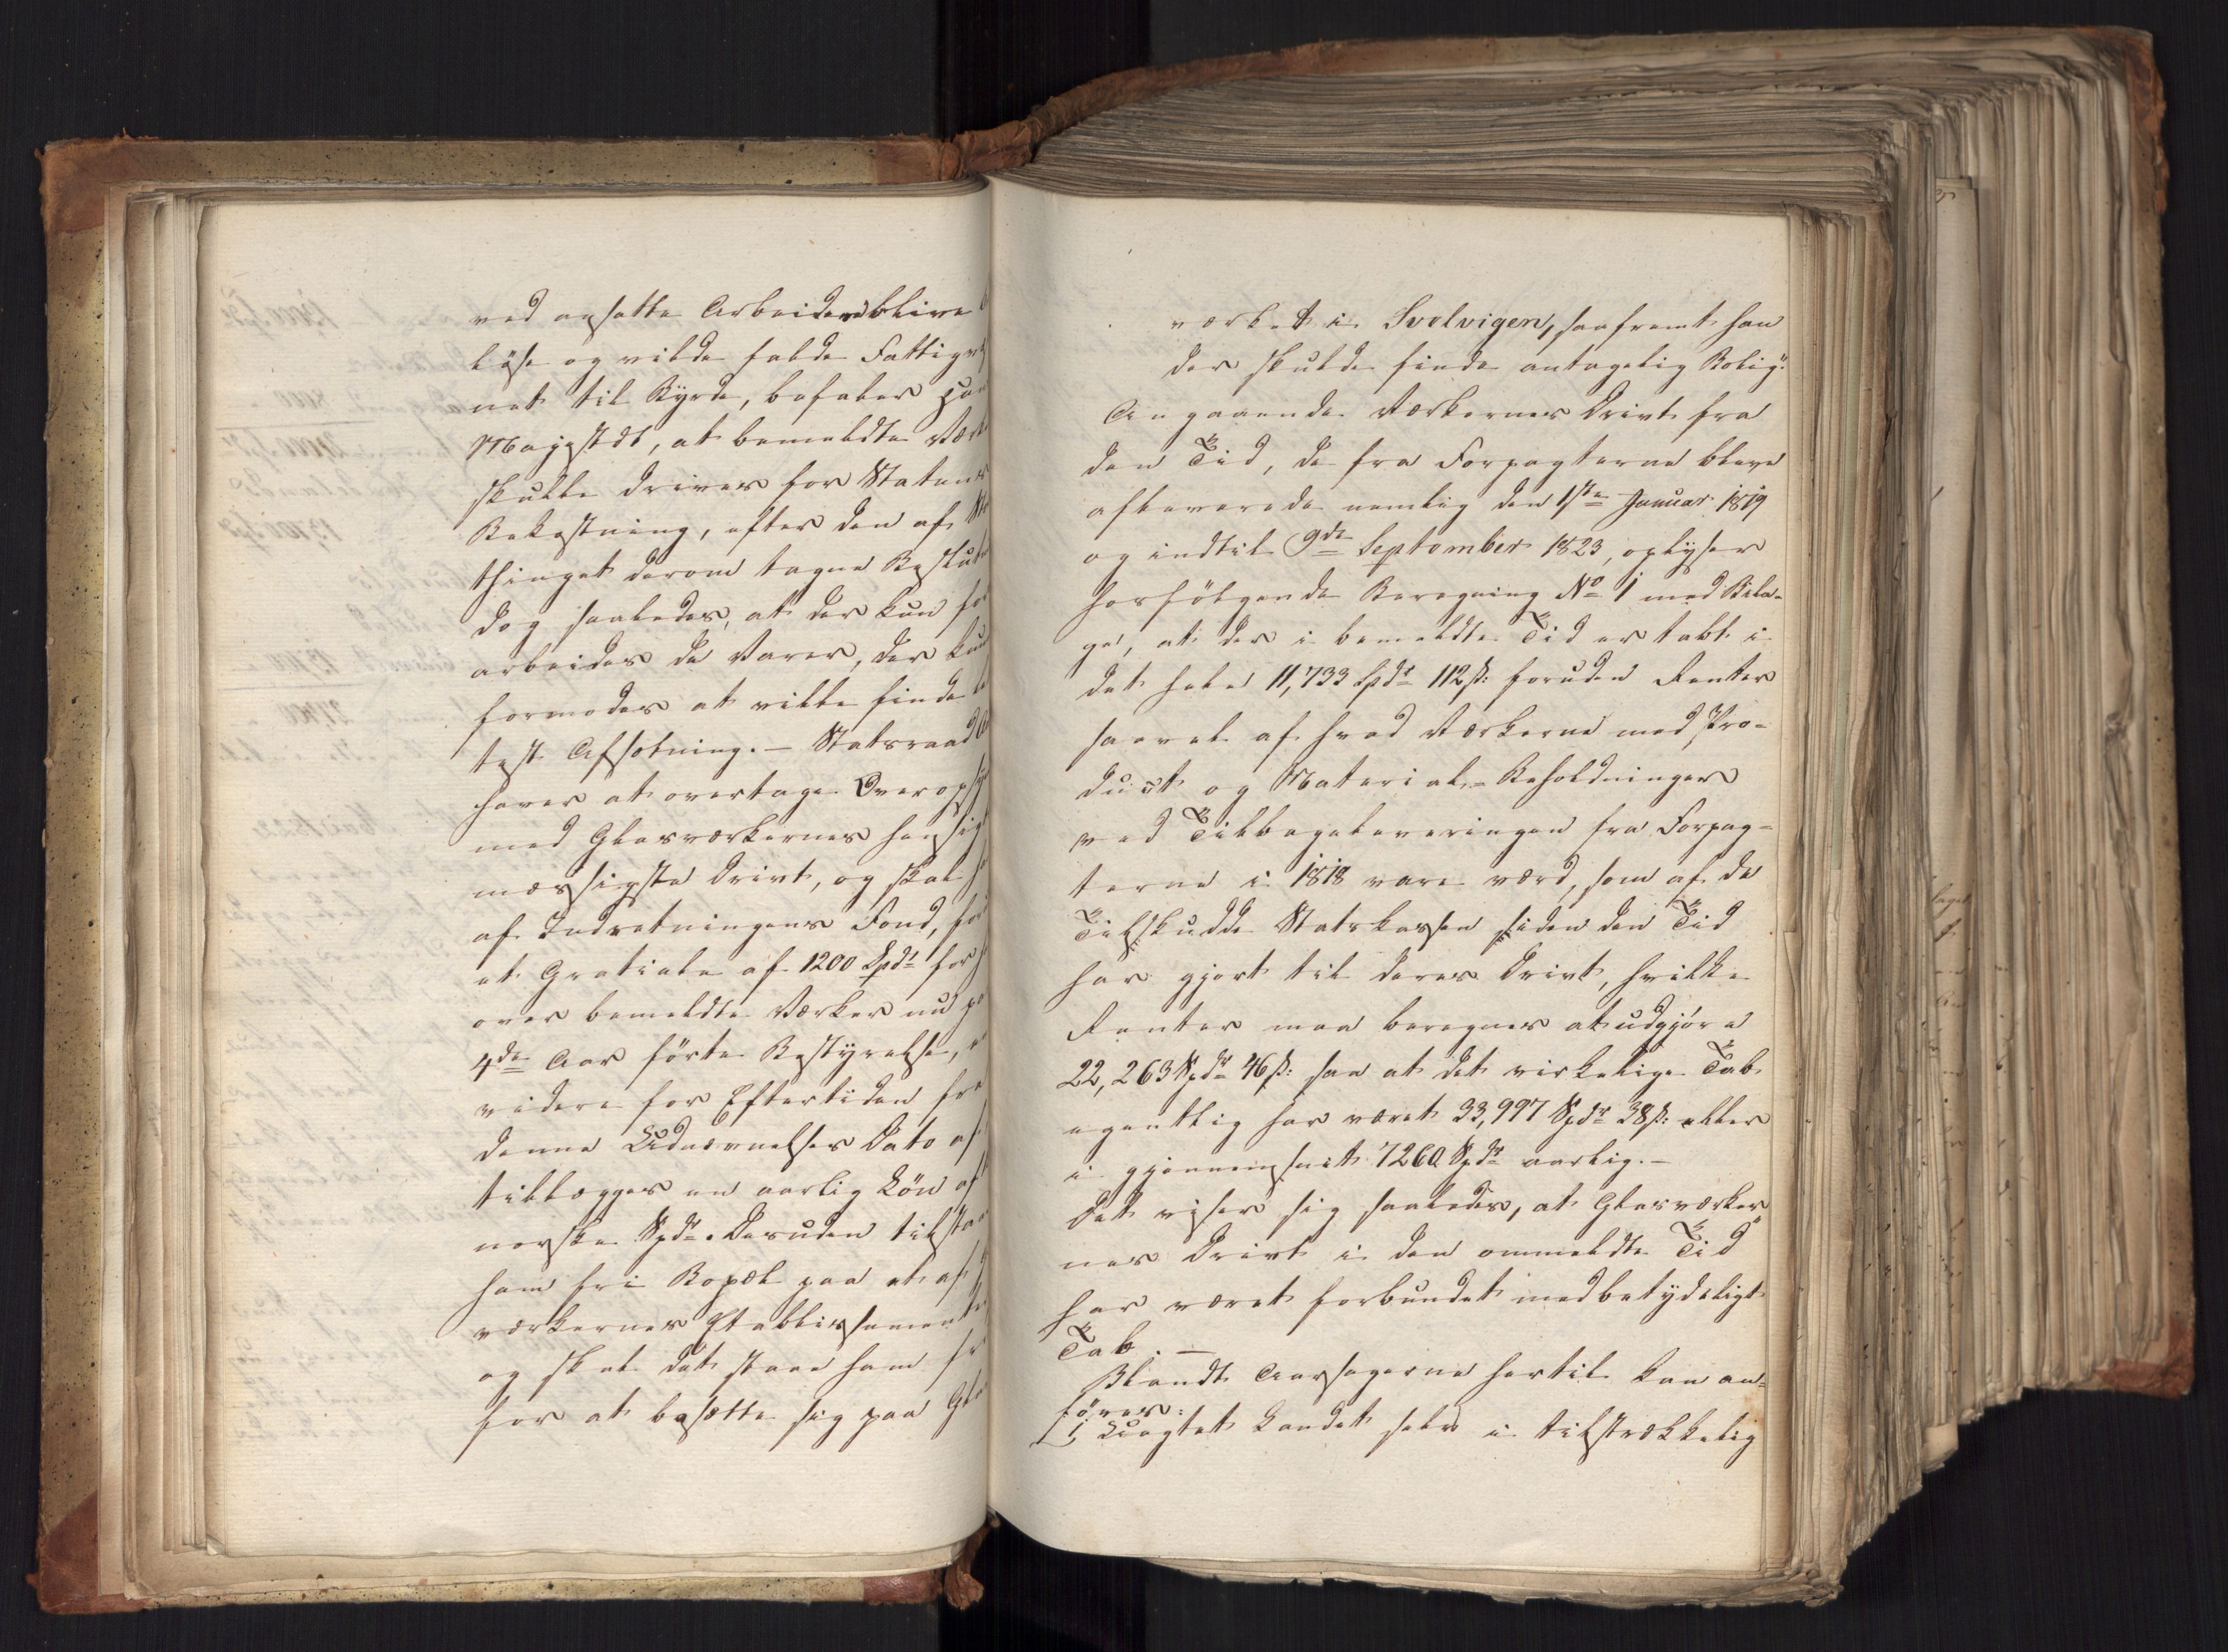 ved ansatte Arbeidere blive
løse og vilde falde Fattigvæ
net til Byrde, befaler Hans
Majestæt, at bemeldte Vær
skulle drives for Statens
Bekostning, efter den af St
thinget derom tagne Beslut
dog saaledes, at der kun for
arbeides de Varer, der kun
formodes at ville finde
test Afsætning. – Statsraad
haver at overtage Overopsy
med Glasværkernes hensigt
mæssigste Drivt, og skal
af Indretningens Fond, for
et Gratiale af 1200 Spdr for
over bemeldte Værker nu paa
4de Aar førte Bestyrelse,
videre for Eftertiden fra
denne Udnævnelses Dato af
tillægges en aarlig Løn af
norske Spdr. Desuden tilstaaes
ham fri Bopæl paa et af
værkernes Etablissementer
og skal det staae ham fr
for at bosætte sig paa Gla
værket i Svelvigen, saafremt han
der skulde finde antagelig Bolig."
Angaaende Værkernes Drivt fra
den Tid, de fra Forpagterne bleve
afleverede nemlig den 1ste Januar 1819
og indtil 9de September 1823, oplyser
hosfølgende Beregning No 1 med Bila-
ge, at der i bemeldte Tid er tabt i
det hele 11,733 Spdr 112 ß: foruden Renter
saavel af hvad Værkerne med Pro-
duct og Material-Beholdninger
ved Tilbageleveringen fra Forpag-
terne i 1818 vare værd, som af de
Tilskudde Statskassen siden den Tid
har gjort til deres Drivt, hvilke
Renter maa beregnes at udgjøre
22,263 Spdr 46 ß: saa at det virkelige Tab
egentlig har været 33,997 Spdr 38 ß: eller
i gjennemsnit 7260 Spdr aarlig. –
Det viser sig saaledes, at Glasværker
nes Drivt i den ommeldte Tid
har været forbundet med betydeligt
Tab. –
Blandt Aarsagerne hertil kan an-
føres:
1) Uagtet Landet selv i tilstrækkelig